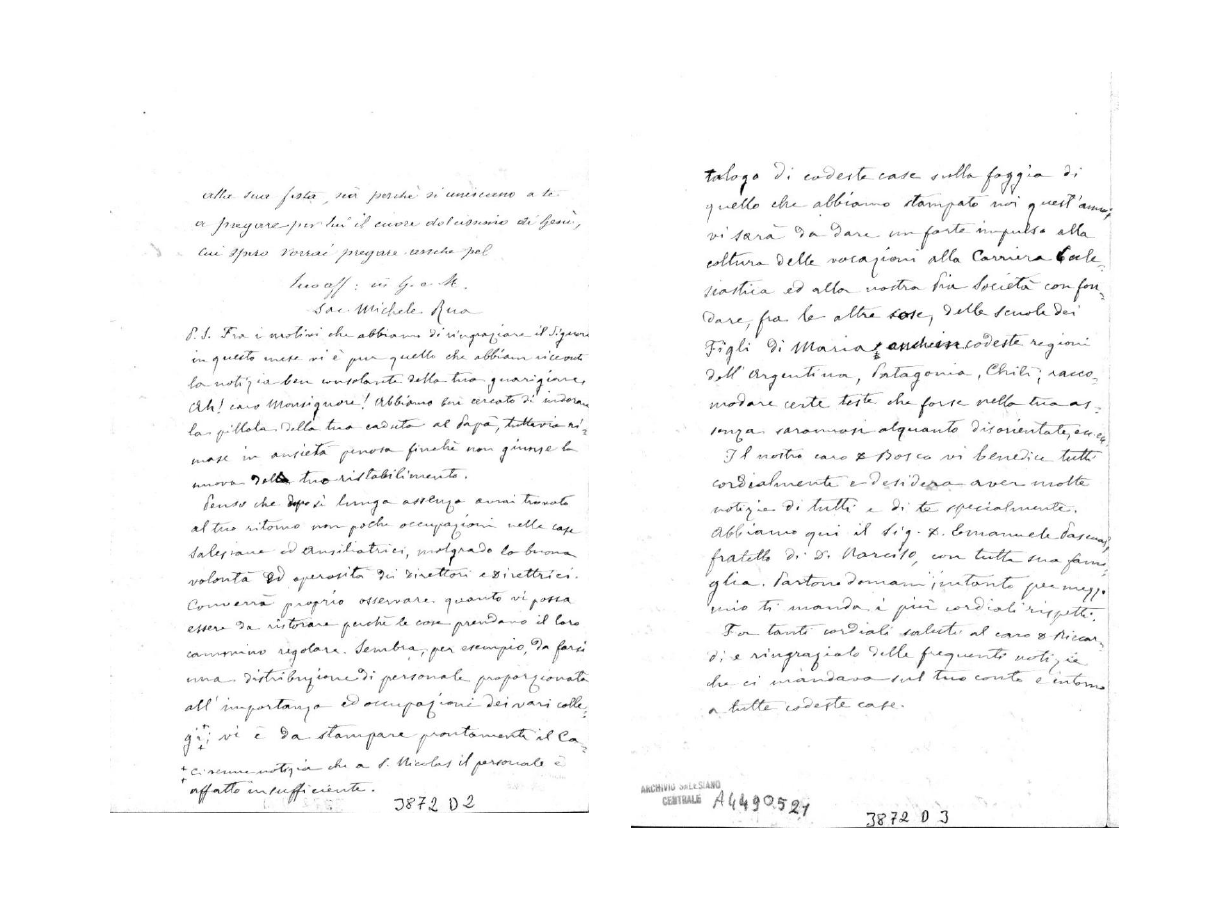 alla sua festa, sia perchè si uniscano a te
a pregare per lui il cuore dolcissimo di Gesù,
cui spero vorrai pregare anche pel
Tuo aff: in G. e M.
Sac. Michele Rua
P. S. Fra i motivi che abbiamo di ringraziare il Signore
in questo mese vi è pur quello che abbiam ricevuto
la notizia ben consolante della tua guarigione.
Ah! caro Monsignore! Abbiamo ben cercato di indorare
la pillola della tua caduta al Papà, tuttavia ri-
mase in ansietà penosa finchè non giunse la
nuova della tuo ristabilimento.
Penso che dopo sì lunga assenza avrai trovato
al tuo ritorno non poche occupazioni nelle case
Salesiane ed Ausiliatrici, malgrado la buona
volontà ed operosità dei direttori e Direttrici.
Converrà proprio osservare quanto vi possa
essere da ristorare perchè le cose prendano il loro
cammino regolare. Sembra, per esempio, da farsi
una distribuzione di personale proporzionata
all'importanza ed occupazioni dei vari colle-
gi; vi è da stampare prontamente il Ca-
+ ci venne notizia che a S. Nicolas il personale è
+ affatto insufficiente.
3872 D 2
talogo di codeste case sulla foggia di
quello che abbiamo stampato noi quest'anno;
vi sarà da dare un forte impulso alla
coltura delle vocazioni alla Carriera Eccle-
siastica ed alla nostra Pia Società con fon-
dare, fra le altre cose, delle scuole dei
Figli di Maria anche in codeste regioni
dell'Argentina, Patagonia, Chilì; racco-
modare certe teste che forse nella tua as-
senza saranno si alquanto disorientate, ecc. ecc.
Il nostro caro D Bosco vi benedice tutti
cordialmente e desidera aver molte
notizie di tutti e di te specialmente.
Abbiamo qui il Sig. D. Emanuele
fratello di D. Narciso, con tutta sua fami-
glia. Partono domani; intanto per mezzo
mio ti manda i più cordiali rispetti.
Fa tanti cordiali saluti al caro D Riccar-
di e ringrazialo delle frequenti notizie
che ci mandava sul tuo conto e intorno
a tutte codeste case.
ARCHIVIO SALESIANO
CENTRALE
A4490521
3872 D 3